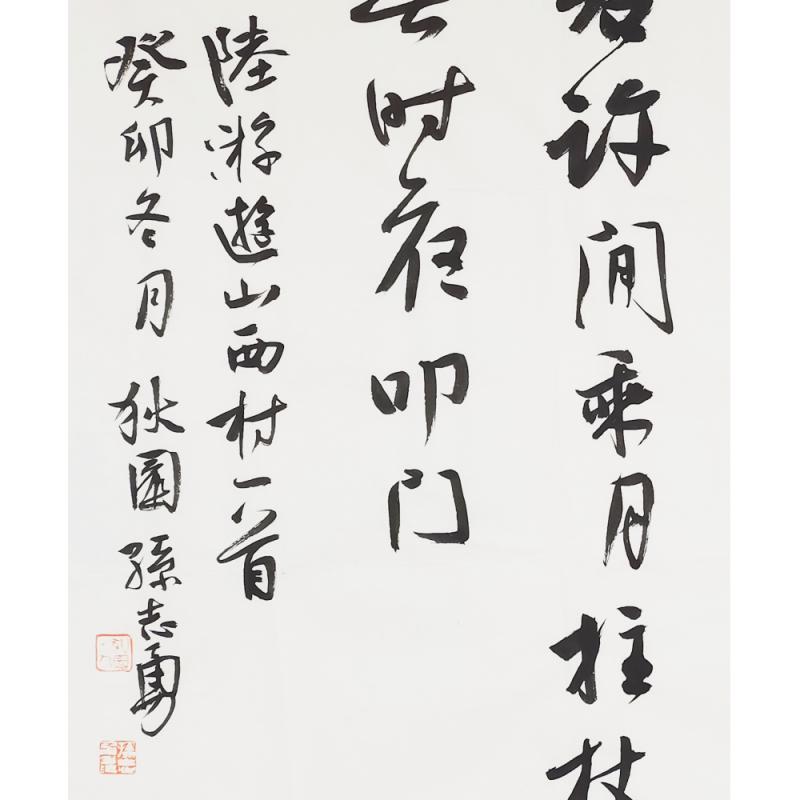 若许闲乘月拄杖
无时夜叩门
陸游遊山西村一首
癸卯冬月狄園孫志勇